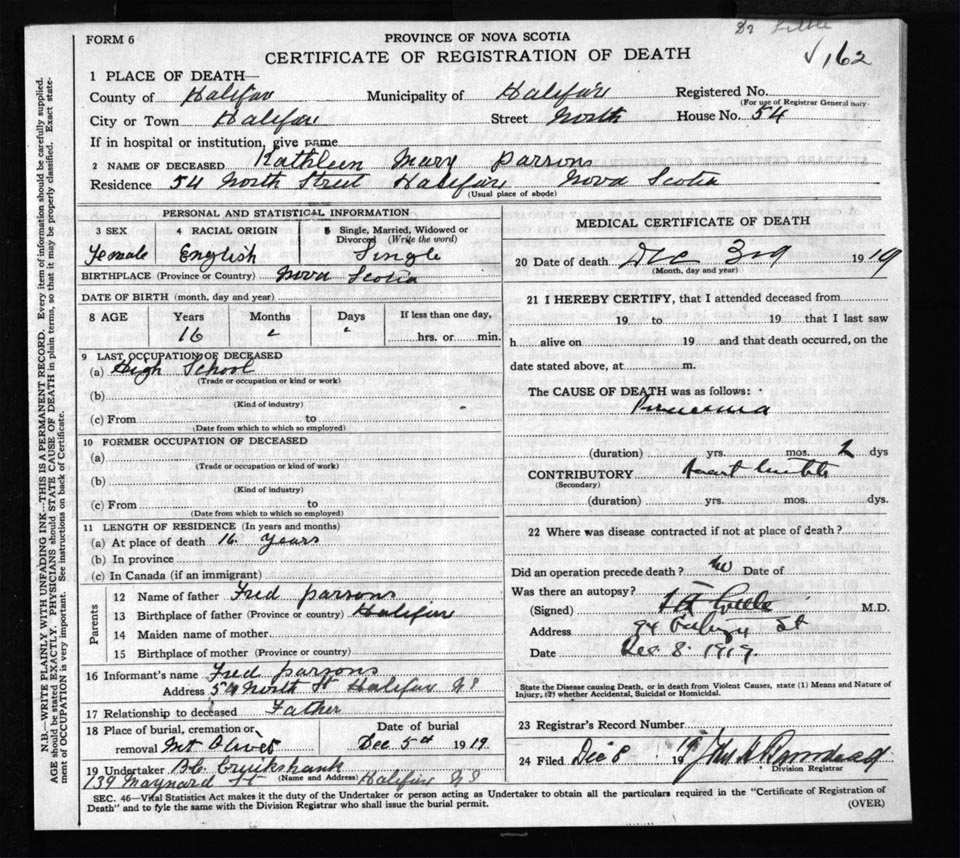 Dr Little
FORM 6
PROVINCE OF NOVA SCOTIA
CERTIFICATE OF REGISTRATION OF DEATH
162
1 PLACE OF DEATH—
County of Halifax Municipality of Halifax Registered No.
(For use of Registrar General only.
City or Town Halifax Street North House No. 54
If in hospital or institution, give name
2 NAME OF DECEASED Kathleen Mary Parsons
Residence 54 North Street Halifax Nova Scotia
(Usual place of abode)
PERSONAL AND STATISTICAL INFORMATION
3 SEX 4 RACIAL ORIGIN 5 Single, Married, Widowed or
Divorced (Write the word)
Female English Single
BIRTHPLACE (Province or Country) Nova Scotia
DATE OF BIRTH (month, day and year)
8 AGE Years Months Days If less than one day,
16 hrs. or min.
9 LAST OCCUPATION OF DECEASED
(a) High School
(Trade or occupation or kind or work)
(b)
(Kind of industry)
(c) From to
(Date from which to which so employed)
10 FORMER OCCUPATION OF DECEASED
(a)
(Trade or occupation or kind of work)
(b)
(Kind of industry)
(c) From to
(Date from which to which so employed)
11 LENGTH OF RESIDENCE (In years and months)
(a) At place of death 16 years
(b) In province
(c) In Canada (if an immigrant)
Parents
12 Name of father Fred Parsons
13 Birthplace of father (Province or country) Halifax
14 Maiden name of mother
15 Birthplace of mother (Province or country)
16 Informant's name Fred Parsons
Address 54 North St Halifax NS
17 Relationship to deceased Father
18 Place of burial, cremation or Date of burial
removal Mt Olivet Dec 5th 1919
19 Undertaker Cruikshank
(Name and Address) Halifax NS
139 Maynard St
MEDICAL CERTIFICATE OF DEATH
20 Date of death Dec 3rd 1919
(Month, day and year)
21 I HEREBY CERTIFY, that I attended deceased from
19 to 19 that I last saw
h alive on 19 and that death occurred, on the
date stated above, at m.
The CAUSE OF DEATH was as follows:
(duration) yrs. mos. 2 dys
CONTRIBUTORY
(Secondary)
(duration) yrs. mos. dys.
22 Where was disease contracted if not at place of death?
Did an operation precede death? no Date of
Was there an autopsy?
(Signed) Little M.D.
Address 94 St
Date Dec 8. 1919.
State the Disease causing Death, or in death from Violent Causes, state (1) Means and Nature of
Injury, (2) whether Accidental, Suicidal or Homicidal.
23 Registrar's Record Number
24 Filed Dec 8 1919
Division Registrar
SEC. 46—Vital Statistics Act makes it the duty of the Undertaker or person acting as Undertaker to obtain all the particulars required in the "Certificate of Registration of
Death" and to fyle the same with the Division Registrar who shall issue the burial permit. (OVER)
N.B.—WRITE PLAINLY WITH UNFADING INK—THIS IS A PERMANENT RECORD. Every item of information should be carefully supplied.
AGE should be stated EXACTLY. PHYSICIANS should STATE CAUSE OF DEATH in plain terms, so that it may be properly classified. Exact state-
ment of OCCUPATION is very important. See instructions on back of Certificate.